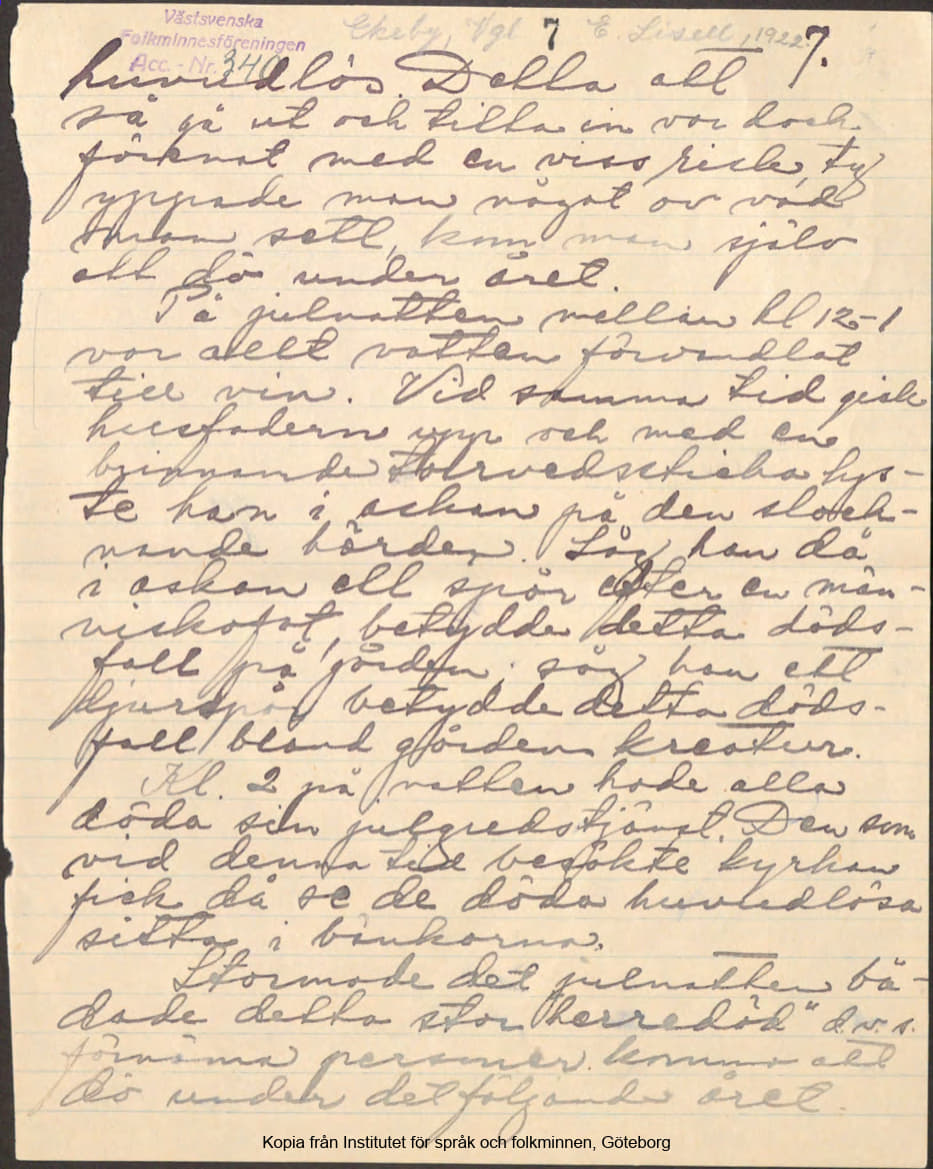 Västsvenska
Folkminnesföreningen
Acc. - Nr. 340
Ekeby, Vgl 7 E. Lisell, 1922. 7.
huvudlös. Detta att
så gå ut och titta in var dock
förknat med en viss risk, ty
yppade man något av vad
man sett, kom man själv
att dö under året.
På julnatten mellan kl 12-1
var allt vatten förvandlat
till vin. Vid samma tid gick
husfadern upp och med en
brinnande torrvedssticka lys-
te han i askan på den slock-
nande härden. Såg han då
i askan ett spår efter en män-
niskofot, betydde detta döds-
fall på gården; såg han ett
djurspår, betydde detta döds-
fall bland gårdens kreatur.
Kl. 2 på natten hade alla
döda sin julgudstjänst. Den som
vid denna tid besökte kyrkan
fick då se de döda huvudlösa
sitta i bänkarna.
Stormade det julnatten bå-
dade detta stor "herredöd" d.v.s.
förnäma personer komma att
dö under det följande året.
Kopia från Institutet för språk och folkminnen, Göteborg